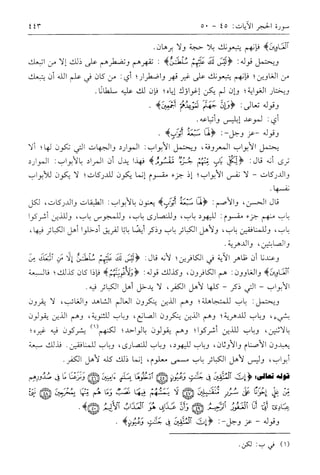 سورة الحجر الآيات: ٤٥ - ٥٠ ٤٤٣
ٱلْغَاوِينَ﴾ فإنهم يتبعونك بلا حجة ولا برهان.
ويحتمل قوله: ﴿لَيْسَ لَكَ عَلَيْهِمْ سُلْطَٰنٌ﴾: تقهرهم وتضطرهم على ذلك إلا من اتبعك
من الغاوين؛ فإنهم يتبعونك على غير قهر واضطرار؛ أي: من كان في علم الله أن يتبعك
ويختار الغواية؛ وإن لم يكن إغواؤك إياه؛ فإن لك عليه سلطانًا.
وقوله تعالى: ﴿وَإِنَّ جَهَنَّمَ لَمَوْعِدُهُمْ أَجْمَعِينَ﴾.
أي: لموعد إبليس وأتباعه.
وقوله -عز وجل-: ﴿لَهَا سَبْعَةُ أَبْوَٰبٍ﴾.
يحتمل الأبواب المعروفة، ويحتمل الأبواب: الموارد والجهات التي تكون لها؛ ألا
ترى أنه قال: ﴿لِكُلِّ بَابٍ مِّنْهُمْ جُزْءٌ مَّقْسُومٌ﴾ فهذا يدل أن المراد بالأبواب: الموارد
والدركات - لا نفس الأبواب؛ إذ جزء مقسوم إنما يكون للدركات؛ لا يكون للأبواب
نفسها.
قال الحسن، والأصم: ﴿لَهَا سَبْعَةُ أَبْوَٰبٍ﴾ يعنون بالأبواب: الطبقات والدركات، لكل
باب منهم جزء مقسوم: لليهود باب، وللنصارى باب، وللمجوس باب، وللذين أشركوا
باب، وللمنافقين باب، ولأهل الكبائر باب وذكر أيضًا بابًا لفريق أدخلوا أهل الكبائر فيها،
والصابئين، والدهرية.
وعندنا أن ظاهر الآية في الكافرين؛ لأنه قال: ﴿لَيْسَ لَكَ عَلَيْهِمْ سُلْطَٰنٌ إِلَّا مَنِ ٱتَّبَعَكَ مِنَ
ٱلْغَاوِينَ﴾ والغاوون: هم الكافرون، وكذلك قوله: ﴿وَلَأُغْوِيَنَّهُمْ﴾ فإذا كان كذلك؛ فالسبعة
الأبواب - التي ذكر - كلها لأهل الكفر، لا يدخل أهل الكبائر فيه.
ويحتمل: باب للمتجاهلة؛ وهم الذين ينكرون العالم الشاهد والغائب، لا يقرون
بشيء، وباب للدهرية؛ وهم الذين ينكرون الصانع، وباب للثنوية، وهم الذين يقولون
بالاثنين، وباب للذين أشركوا؛ وهم يقولون بالواحد؛ لكنهم(١) يشركون فيه غيره؛
يعبدون الأصنام والأوثان، وباب لليهود، وباب للنصارى، وباب للمنافقين. فذلك سبعة
أبواب، وليس لأهل الكبائر باب مسمى معلوم، إنما ذلك كله لأهل الكفر.
قوله تعالى: ﴿إِنَّ ٱلْمُتَّقِينَ فِى جَنَّٰتٍ وَعُيُونٍ ٱدْخُلُوهَا بِسَلَٰمٍ ءَامِنِينَ وَنَزَعْنَا مَا فِى صُدُورِهِم
مِّنْ غِلٍّ إِخْوَٰنًا عَلَىٰ سُرُرٍ مُّتَقَٰبِلِينَ لَا يَمَسُّهُمْ فِيهَا نَصَبٌ وَمَا هُم مِّنْهَا بِمُخْرَجِينَ نَبِّئْ
عِبَادِىٓ أَنِّىٓ أَنَا ٱلْغَفُورُ ٱلرَّحِيمُ وَأَنَّ عَذَابِى هُوَ ٱلْعَذَابُ ٱلْأَلِيمُ﴾.
وقوله - عز وجل-: ﴿إِنَّ ٱلْمُتَّقِينَ فِى جَنَّٰتٍ وَعُيُونٍ﴾.
(١) في ب: لكن.